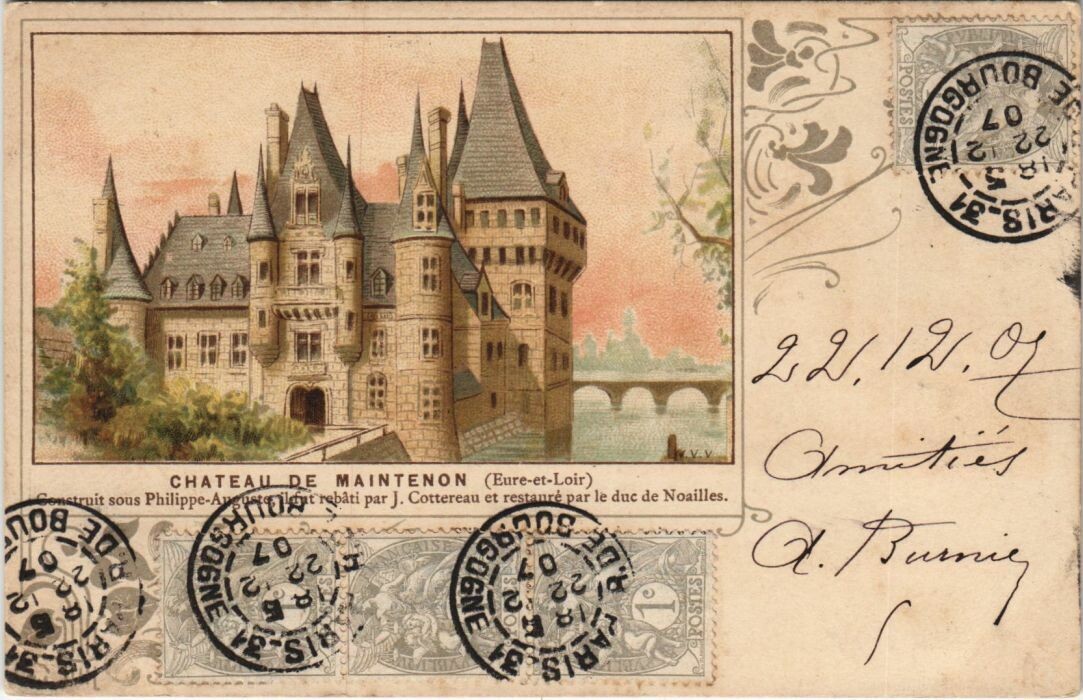 CHATEAU DE MAINTENON (Eure-et-Loir)
Construit sous Philippe-Auguste, il fut rebâti par J. Cottereau et restauré par le duc de Noailles.
22.12.07
Amitiés
A. Burnie
W.V.V
POSTES
PARIS-31
R. DE BOURGOGNE
18
5
22 12
07
BOURGOGNE
PARIS-31
R. DE BOURGOGNE
18
5
22 12
07
PARIS-31
R. DE BOURGOGNE
18
5
22 12
07
1c
POSTES